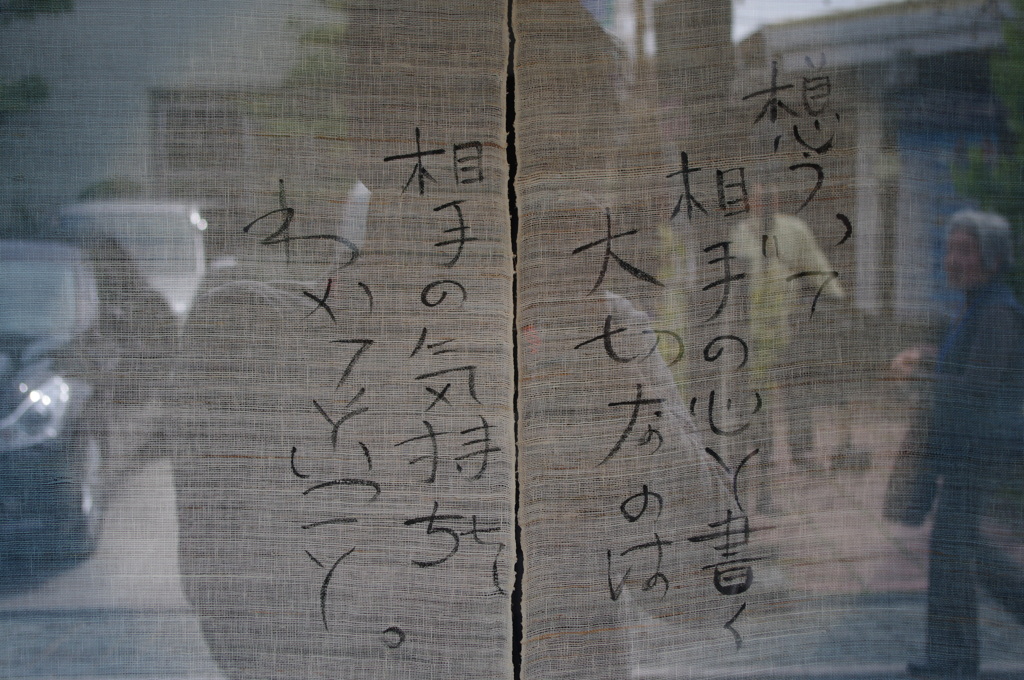 想うって
相手の心と書く
大切なのは
相手の気持ちも
わかるということ。